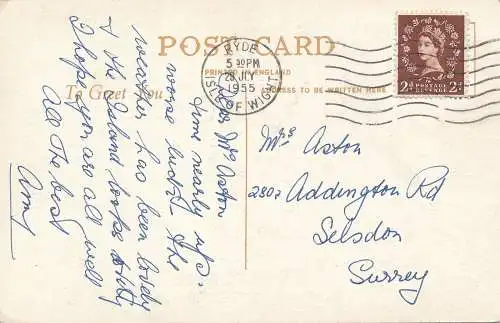 POST CARD
PRINTED IN ENGLAND
To Greet You
ADDRESS TO BE WRITTEN HERE
RYDE
5 30 PM
28 JLY
1955
ISLE OF WIGHT
POSTAGE
REVENUE
2D 2D
Dear Mrs Aston
time nearly up.
worse luck. The
weather has been lovely
& the Island looks pretty
I hope you are all well
All the best
Amy
Mrs Aston
280a Addington Rd
Selsdon
Surrey